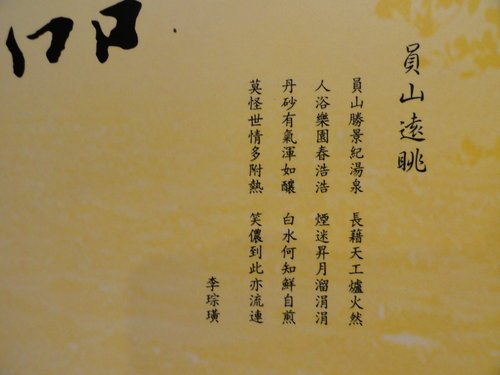 員山遠眺
員山勝景紀湯泉 長藉天工爐火然
人浴樂園春浩浩 煙迷昇月溜涓涓
丹砂有氣渾如釀 白水何知鮮自煎
莫怪世情多附熱 笑儂到此亦流連
李琮璜